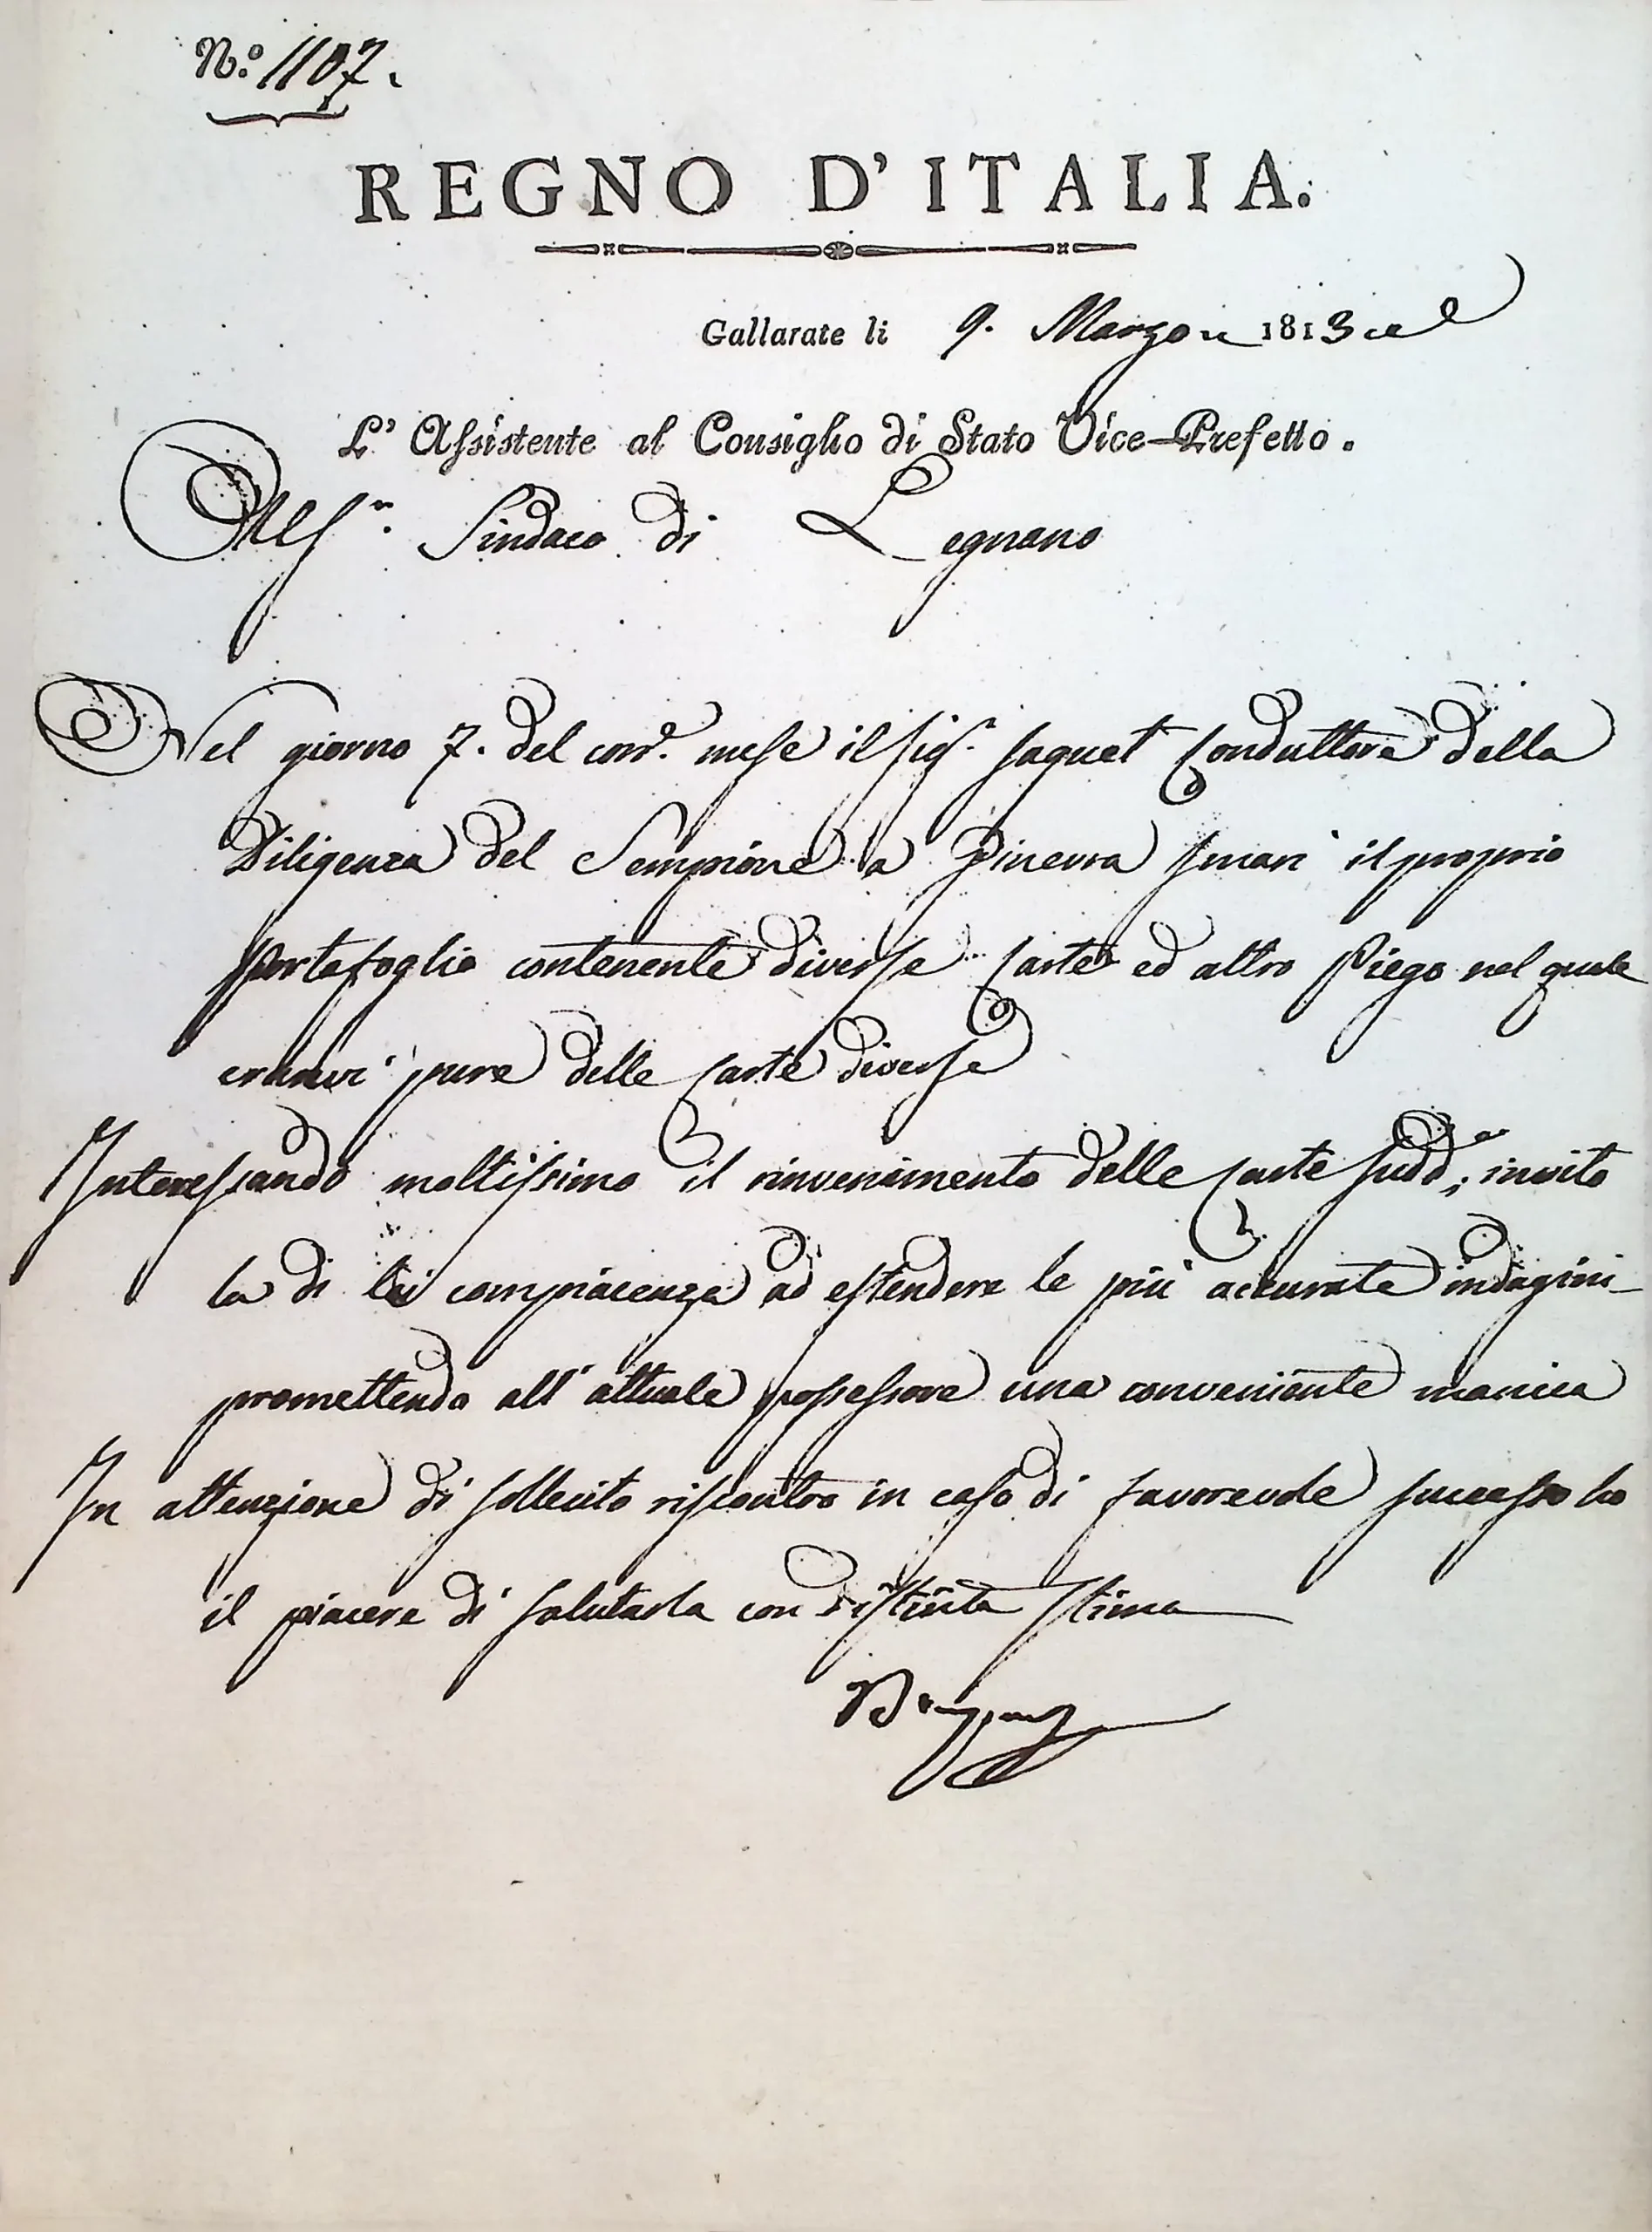 N.º 1107.
REGNO D'ITALIA.
Gallarate li 9. Marzo 1813
L' Assistente al Consiglio di Stato Vice-Prefetto.
Al Sr. Sindaco di Legnano
Nel giorno 7. del corr.e mese il Sigr. Jaquet Conduttore della
Diligenza del Sempione a Ginevra smarì il proprio
portafoglio contenente diverse Carte ed altro Piego nel quale
eranvi pure delle Carte diverse
Interessando moltissimo il rinvenimento delle Carte sudd.e; invito
la di lei compiacenza ad estendere le più accurate indagini
promettendo all' attuale possessore una conveniente mancia
In attenzione di sollecito riscontro in caso di favorevole successo ho
il piacere di salutarla con distinta stima